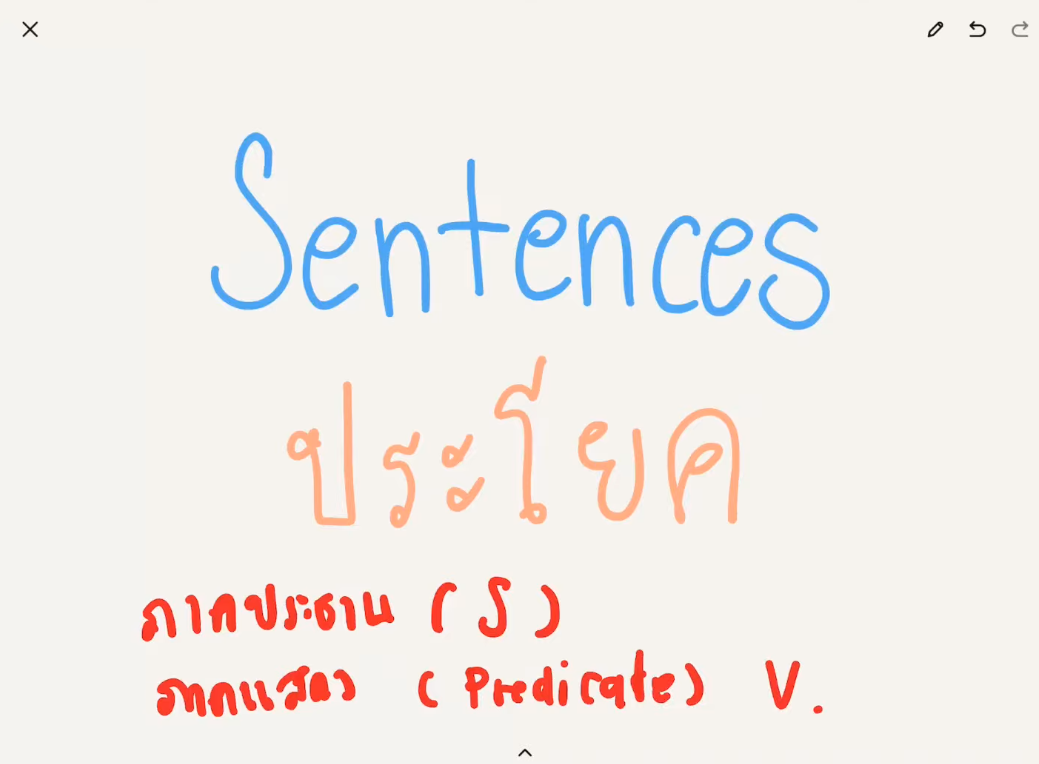 Sentences
ประโยค
ภาคประธาน ( S )
ภาคแสดง ( Predicate ) V.